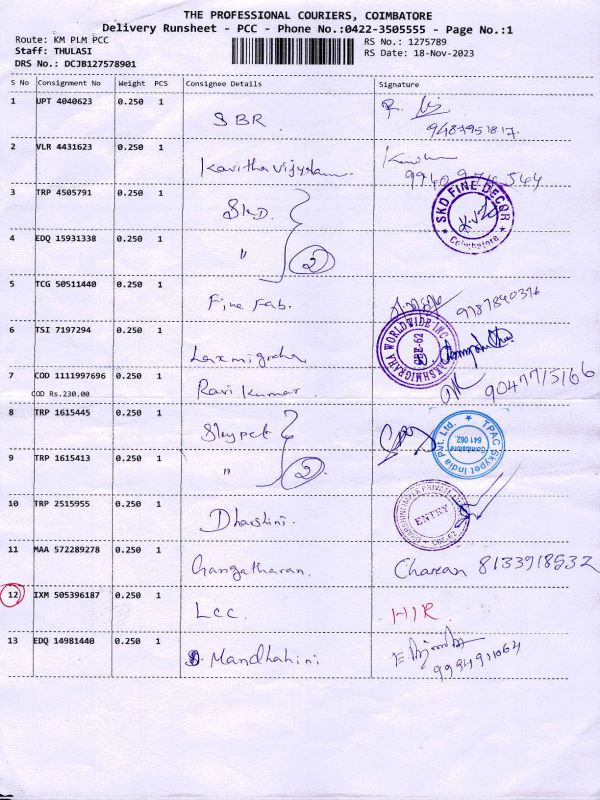 THE PROFESSIONAL COURIERS, COIMBATORE
Delivery Runsheet - PCC - Phone No.:0422-3505555 - Page No.:1
Route: KM PLM PCC
RS No.: 1275789
Staff: THULASI
RS Date: 18-Nov-2023
DRS No.: DCJB127578901
S No Consignment No Weight PCS Consignee Details Signature
1 UPT 4040623 0.250 1 SBR
9487951817
2 VLR 4431623 0.250 1 Kavitha vijyalam
3 TRP 4505791 0.250 1 SKD.
SKD FINE DECOR
Coimbatore
4 EDQ 15931338 0.250 1 " 2
5 TCG 50511440 0.250 1 Fine Fab. 9787840376
6 TSI 7197294 0.250 1 Laxmigraha
LAKSHMIGRAHA WORLDWIDE INC
CBE-62
7 COD 1111997696 0.250 1 Ravi Kumar 9047715166
COD Rs.230.00
8 TRP 1615445 0.250 1 Skypet
TPAC Skypet India Pvt. Ltd.
Coimbatore
641 062
9 TRP 1615413 0.250 1 " 2
10 TRP 2515955 0.250 1 Dharshini.
ENTRY
11 MAA 572289278 0.250 1 Gangatharan. Charan 8133918532
12 IXM 505396187 0.250 1 LCC HIR
13 EDQ 14981440 0.250 1 S. Mandhahini
9994911064